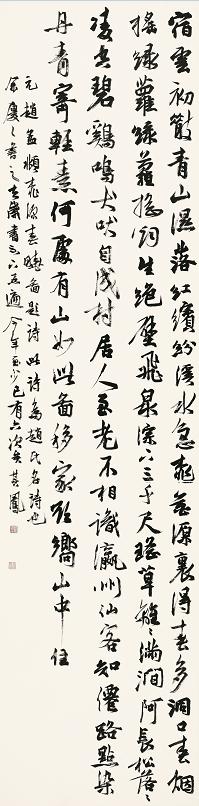 宿雲初散青山濕落紅繽紛溪水急桃花源裏得春多洞口春烟
搖綠蘿綠蘿搖烟生絕壁飛泉淙下三千尺瑤草離〻滿澗阿長松落〻
凌空碧鷄鳴犬吠自成村居人至老不相識瀛洲仙客知僊路點染
丹青寄輕素何處有山如此圖移家欲嚮山中住
元趙孟頫桃源春曉圖題詩此詩為趙氏名詩也
余屢〻書之去歲書之五遍今年至少已有六次矣其鳳